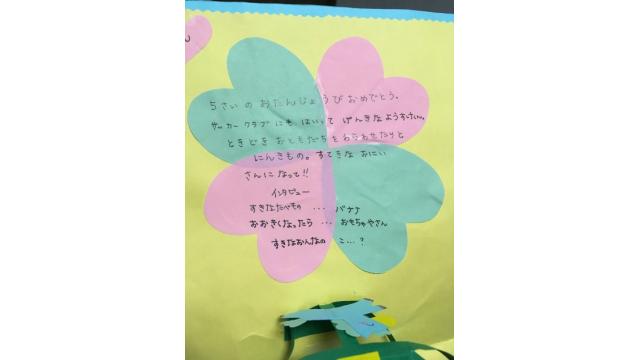 5さいの おたんじょうび おめでとう。
サッカークラブ にも、はいって げんきな ようすけくん。
ときどき おともだち を わらわせたりと
にんきもの。すてきな おにい
さんに なって!!
インタビュー
すきなたべもの … バナナ
おおきくなったら … おもちゃやさん
すきなおんなの こ…?